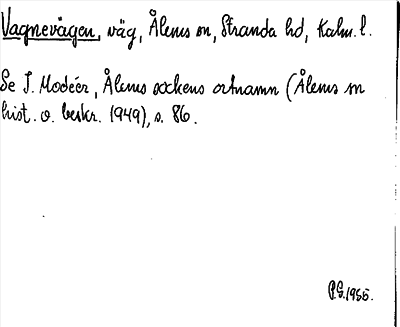 Vagnevägen, väg, Ålems sn, Stranda hd, Kalm. l.
Se I. Modéer, Ålems sockens ortnamn (Ålems sn
hist. o. beskr. 1949), s. 86.
P.G. 1955.